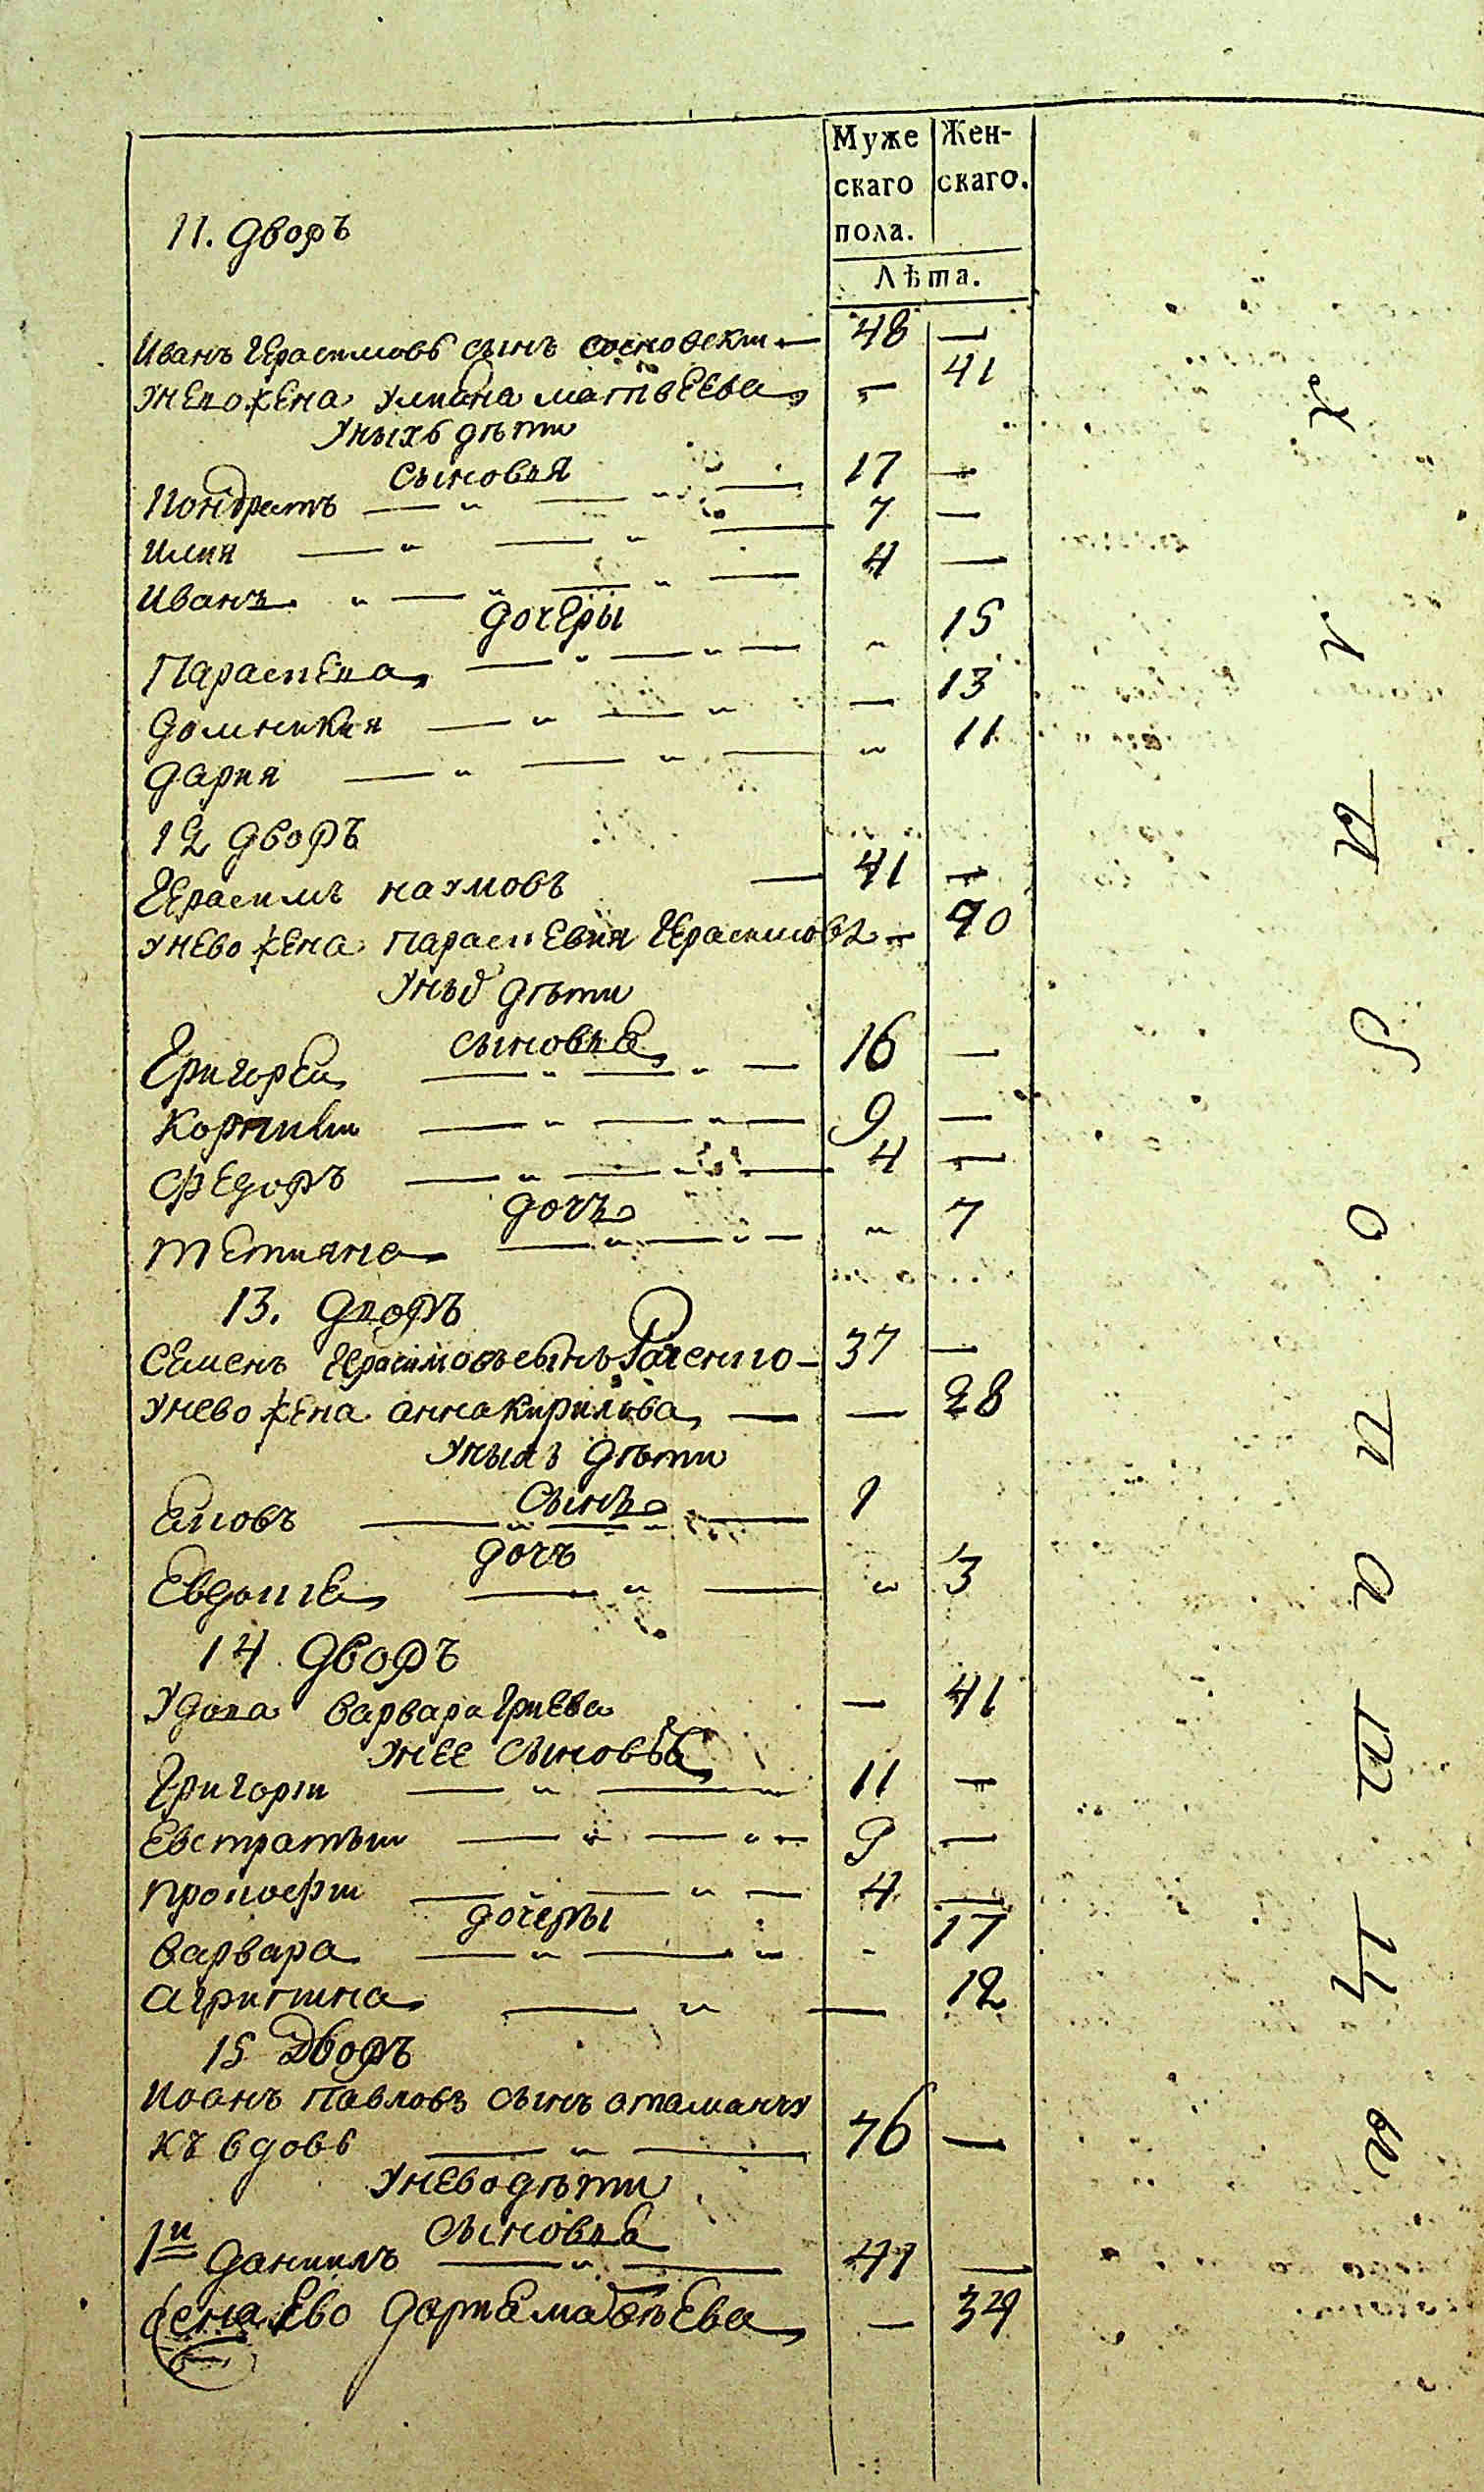 Муже
скаго
пола.
Жен-
скаго.
Лѣта.
11. дворъ
Иванъ Герасимовъ сынъ сосновски — 48 —
унево жена улиана матвеева — 41
Уныхъ дѣти
сыновья
Кондратъ — 17 —
илия — 7 —
Иванъ — 4 —
дочеры
Параскева — 15
домникия — 13
дария — 11
12 дворъ
Герасимъ наумовъ — 41 —
унево жена параскевия Герасимова — 40
Уныхъ дѣти
сыновья
Григорей — 16 —
Корнилии — 9 —
Федоръ — 4 —
дочъ
тетияна — 7
13. дворъ
Семенъ Герасимовъ сынъ — 37 —
унево жена анна кирилова — — 28
Уныхъ дѣти
сынъ
Яковъ — 1
дочъ
Евдокие — 3
14 дворъ
Удова варвара — 41
унее сыновья
Григории — 11 —
Евстратьи — 9 —
прокофи — 4 —
дочеры
варвара — 17
агрипина — 12
15 Дворъ
Иоанъ павловъ сынъ атаманчу
къ вдовъ — 76 —
Унево дѣти
сыновья
1й даниилъ — 41 —
жена ево дария матвѣева — 34